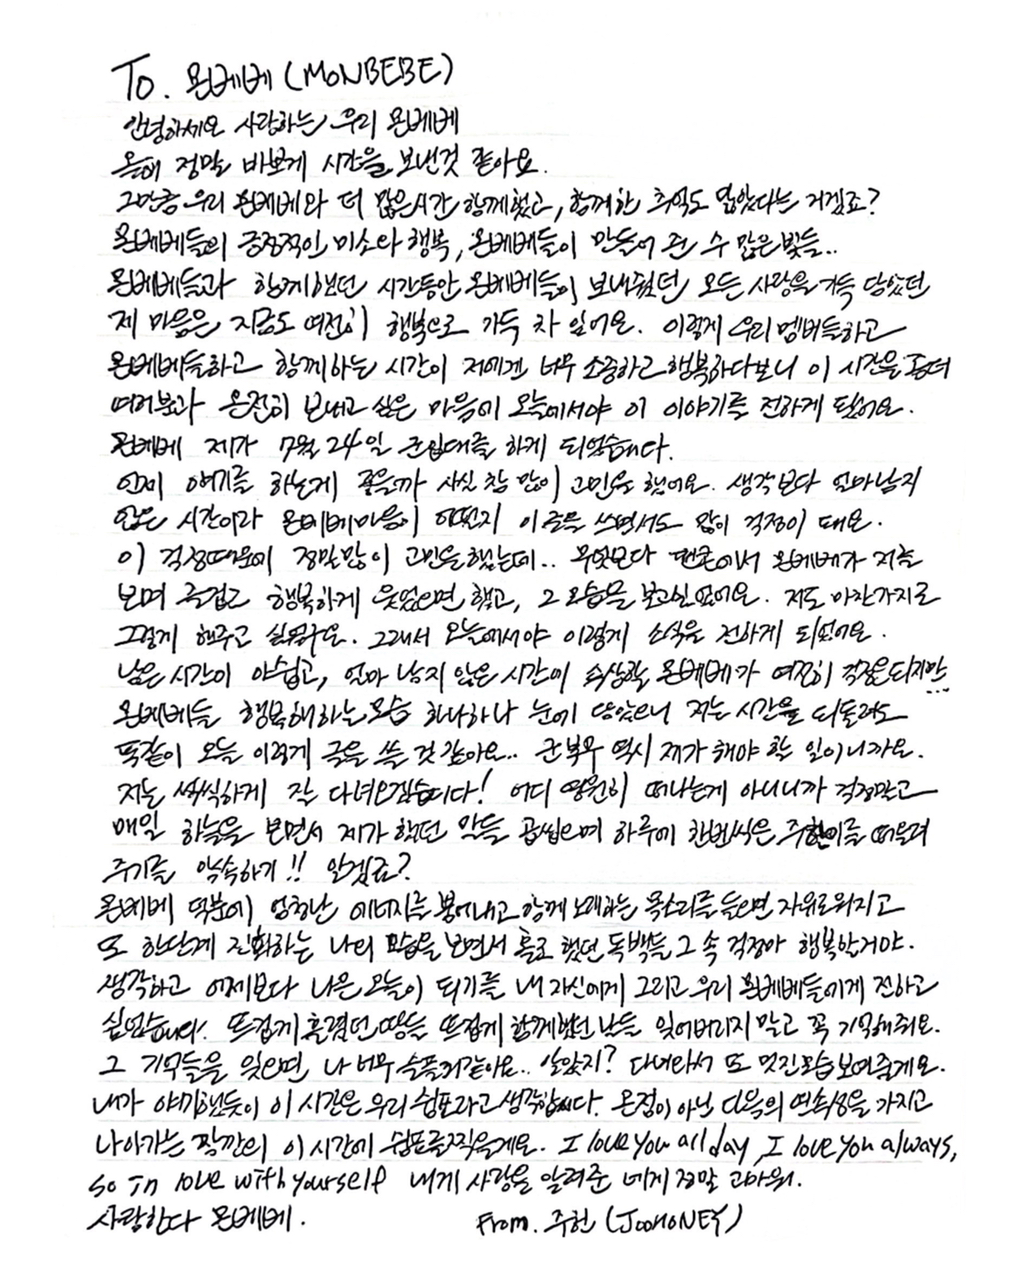 To. 몬베베 (MONBEBE)
안녕하세요 사랑하는 우리 몬베베
올해 정말 바쁘게 시간을 보낸것 같아요.
그만큼 우리 몬베베와 더 많은시간 함께했고, 함께한 추억도 많았다는 거겠죠?
몬베베들의 긍정적인 미소와 행복, 몬베베들이 만들어 준 수 많은 빛들..
몬베베들과 함께했던 시간동안 몬베베들이 보내줬던 모든 사랑을 가득 담았던
제 마음은 지금도 여전히 행복으로 가득 차 있어요. 이렇게 우리 멤버들하고
몬베베들하고 함께하는 시간이 저에겐 너무 소중하고 행복하다보니 이 시간을 좀더
여러분과 온전히 보내고 싶은 마음에 오늘에서야 이 이야기를 전하게 됐어요.
몬베베 제가 7월 24일 군입대를 하게 되었습니다.
언제 얘기를 하는게 좋을까 사실 참 많이 고민을 했어요. 생각보다 얼마남지
않은 시간이라 몬베베마음이 어떤지 이 글을 쓰면서도 많이 걱정이 돼요.
이 걱정때문에 정말많이 고민을 했는데.. 무엇보다 팬콘에서 몬베베가 저를
보며 즐겁고 행복하게 웃었으면 했고, 그 모습을 보고싶었어요. 저도 마찬가지로
그렇게 해주고 싶었구요. 그래서 오늘에서야 이렇게 소식을 전하게 되었어요.
남은 시간이 아쉽고, 얼마 남지 않은 시간에 속상할 몬베베가 여전히 걱정은되지만...
몬베베들 행복해하는모습 하나하나 눈에 담았으니 저는 시간을 되돌려도
똑같이 오늘 이렇게 글을 쓸 것 같아요.. 군복무 역시 제가 해야 할 일이니까요.
저는 씩씩하게 잘 다녀오겠습니다! 어디 영원히 떠나는게 아니니까 걱정말고
매일 하늘을 보면서 제가 했던 말들 곱씹으며 하루에 한번씩은 주헌이를 떠올려
주기로 약속하기!! 알겠죠?
몬베베 덕분에 엄청난 에너지를 뿜어내고 함께 노래하는 목소리를 들으면 자유로워지고
또 한단계 진화하는 나의 모습을 보면서 홀로 했던 독백들, 그 속 걱정아 행복할거야.
생각하고 어제보다 나은 오늘이 되기를 내 자신에게 그리고 우리 몬베베들에게 전하고
싶었습니다. 뜨겁게 흘렸던 땀들 뜨겁게 함께했던 날들 잊어버리지 말고 꼭 기억해줘요.
그 기억들을 잊으면, 나 너무 슬플거같아요.. 알았지? 다녀와서 또 멋진모습 보여줄게요.
내가 얘기했듯이 이 시간은 우리 쉼표라고 생각합니다. 온점이 아닌 다음의 연속성을 가지고
나아가는 잠깐의 이 시간에 쉼표를 찍을게요. I love you all day, I love you always,
so in love with yourself 내게 사랑을 알려준 네게 정말 고마워.
사랑한다 몬베베. From. 주헌 (JOOHONEY)